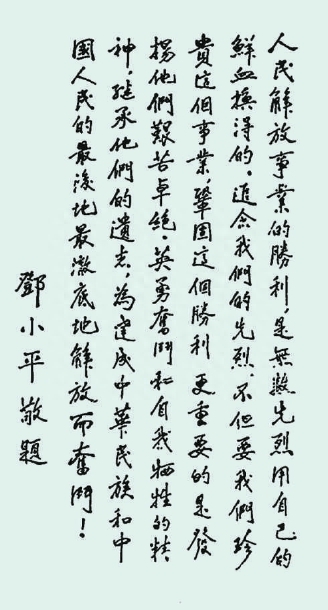 人民解放事業的勝利，是無數先烈用自己的
鮮血換得的。追念我們的先烈，不但要我們珍
貴這個事業，鞏固這個勝利，更重要的是發
揚他們艱苦卓絕、英勇奮鬥和自我犧牲的精
神，繼承他們的遺志，為達成中華民族和中
國人民的最後地最澈底地解放而奮鬥！
鄧小平敬題